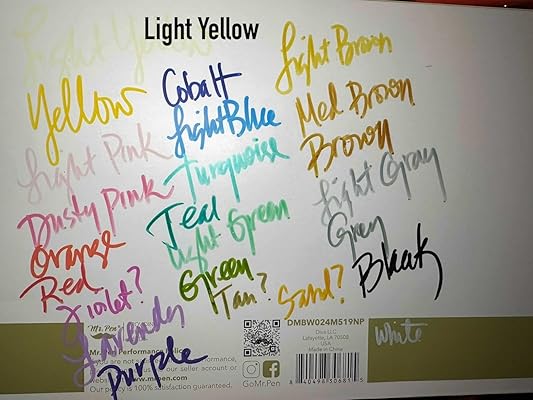 Light Yellow
Light Yellow
Yellow
Light Pink
Dusty Pink
Orange
Red
Violet?
Lavender
Purple
Cobalt
Light Blue
Turquoise
Teal
Light Green
Green
Tan?
Sand?
Light Brown
Med Brown
Brown
Light Gray
Grey
Black
White
"Mr. Pen"
Mr. Pen Performance
you are not
our seller
website www.mrpen
Our policy is 100% satisfaction guaranteed.
GoMr.Pen
DMBW024M519NP
Diva LLC
Lafayette, LA 70508
USA
Made in China